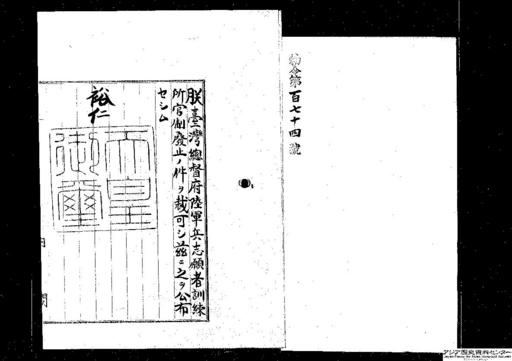 勅令第百七十四號
朕臺灣總督府陸軍兵志願者訓練
所官制廢止ノ件ヲ裁可シ茲ニ之ヲ公布
セシム
裕仁
天皇
御璽
アジア歴史資料センター